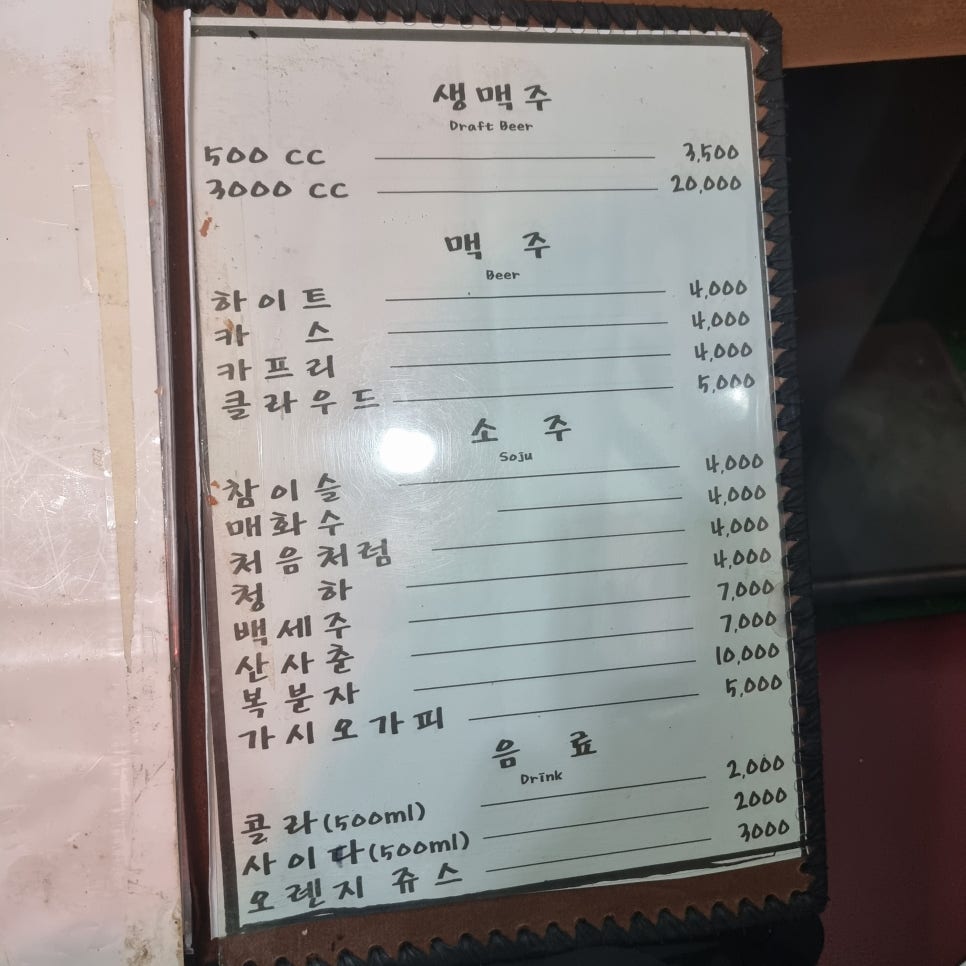 생맥주
Draft Beer
500 CC 3,500
3000 CC 20,000
맥 주
Beer
하이트 4,000
카 스 4,000
카프리 4,000
클라우드 5,000
소 주
Soju
참이슬 4,000
매화수 4,000
처음처럼 4,000
청 하 4,000
백세주 7,000
산사춘 7,000
복분자 10,000
가시오가피 5,000
음 료
Drink
콜라(500ml) 2,000
사이다(500ml) 2000
오렌지 쥬스 3000